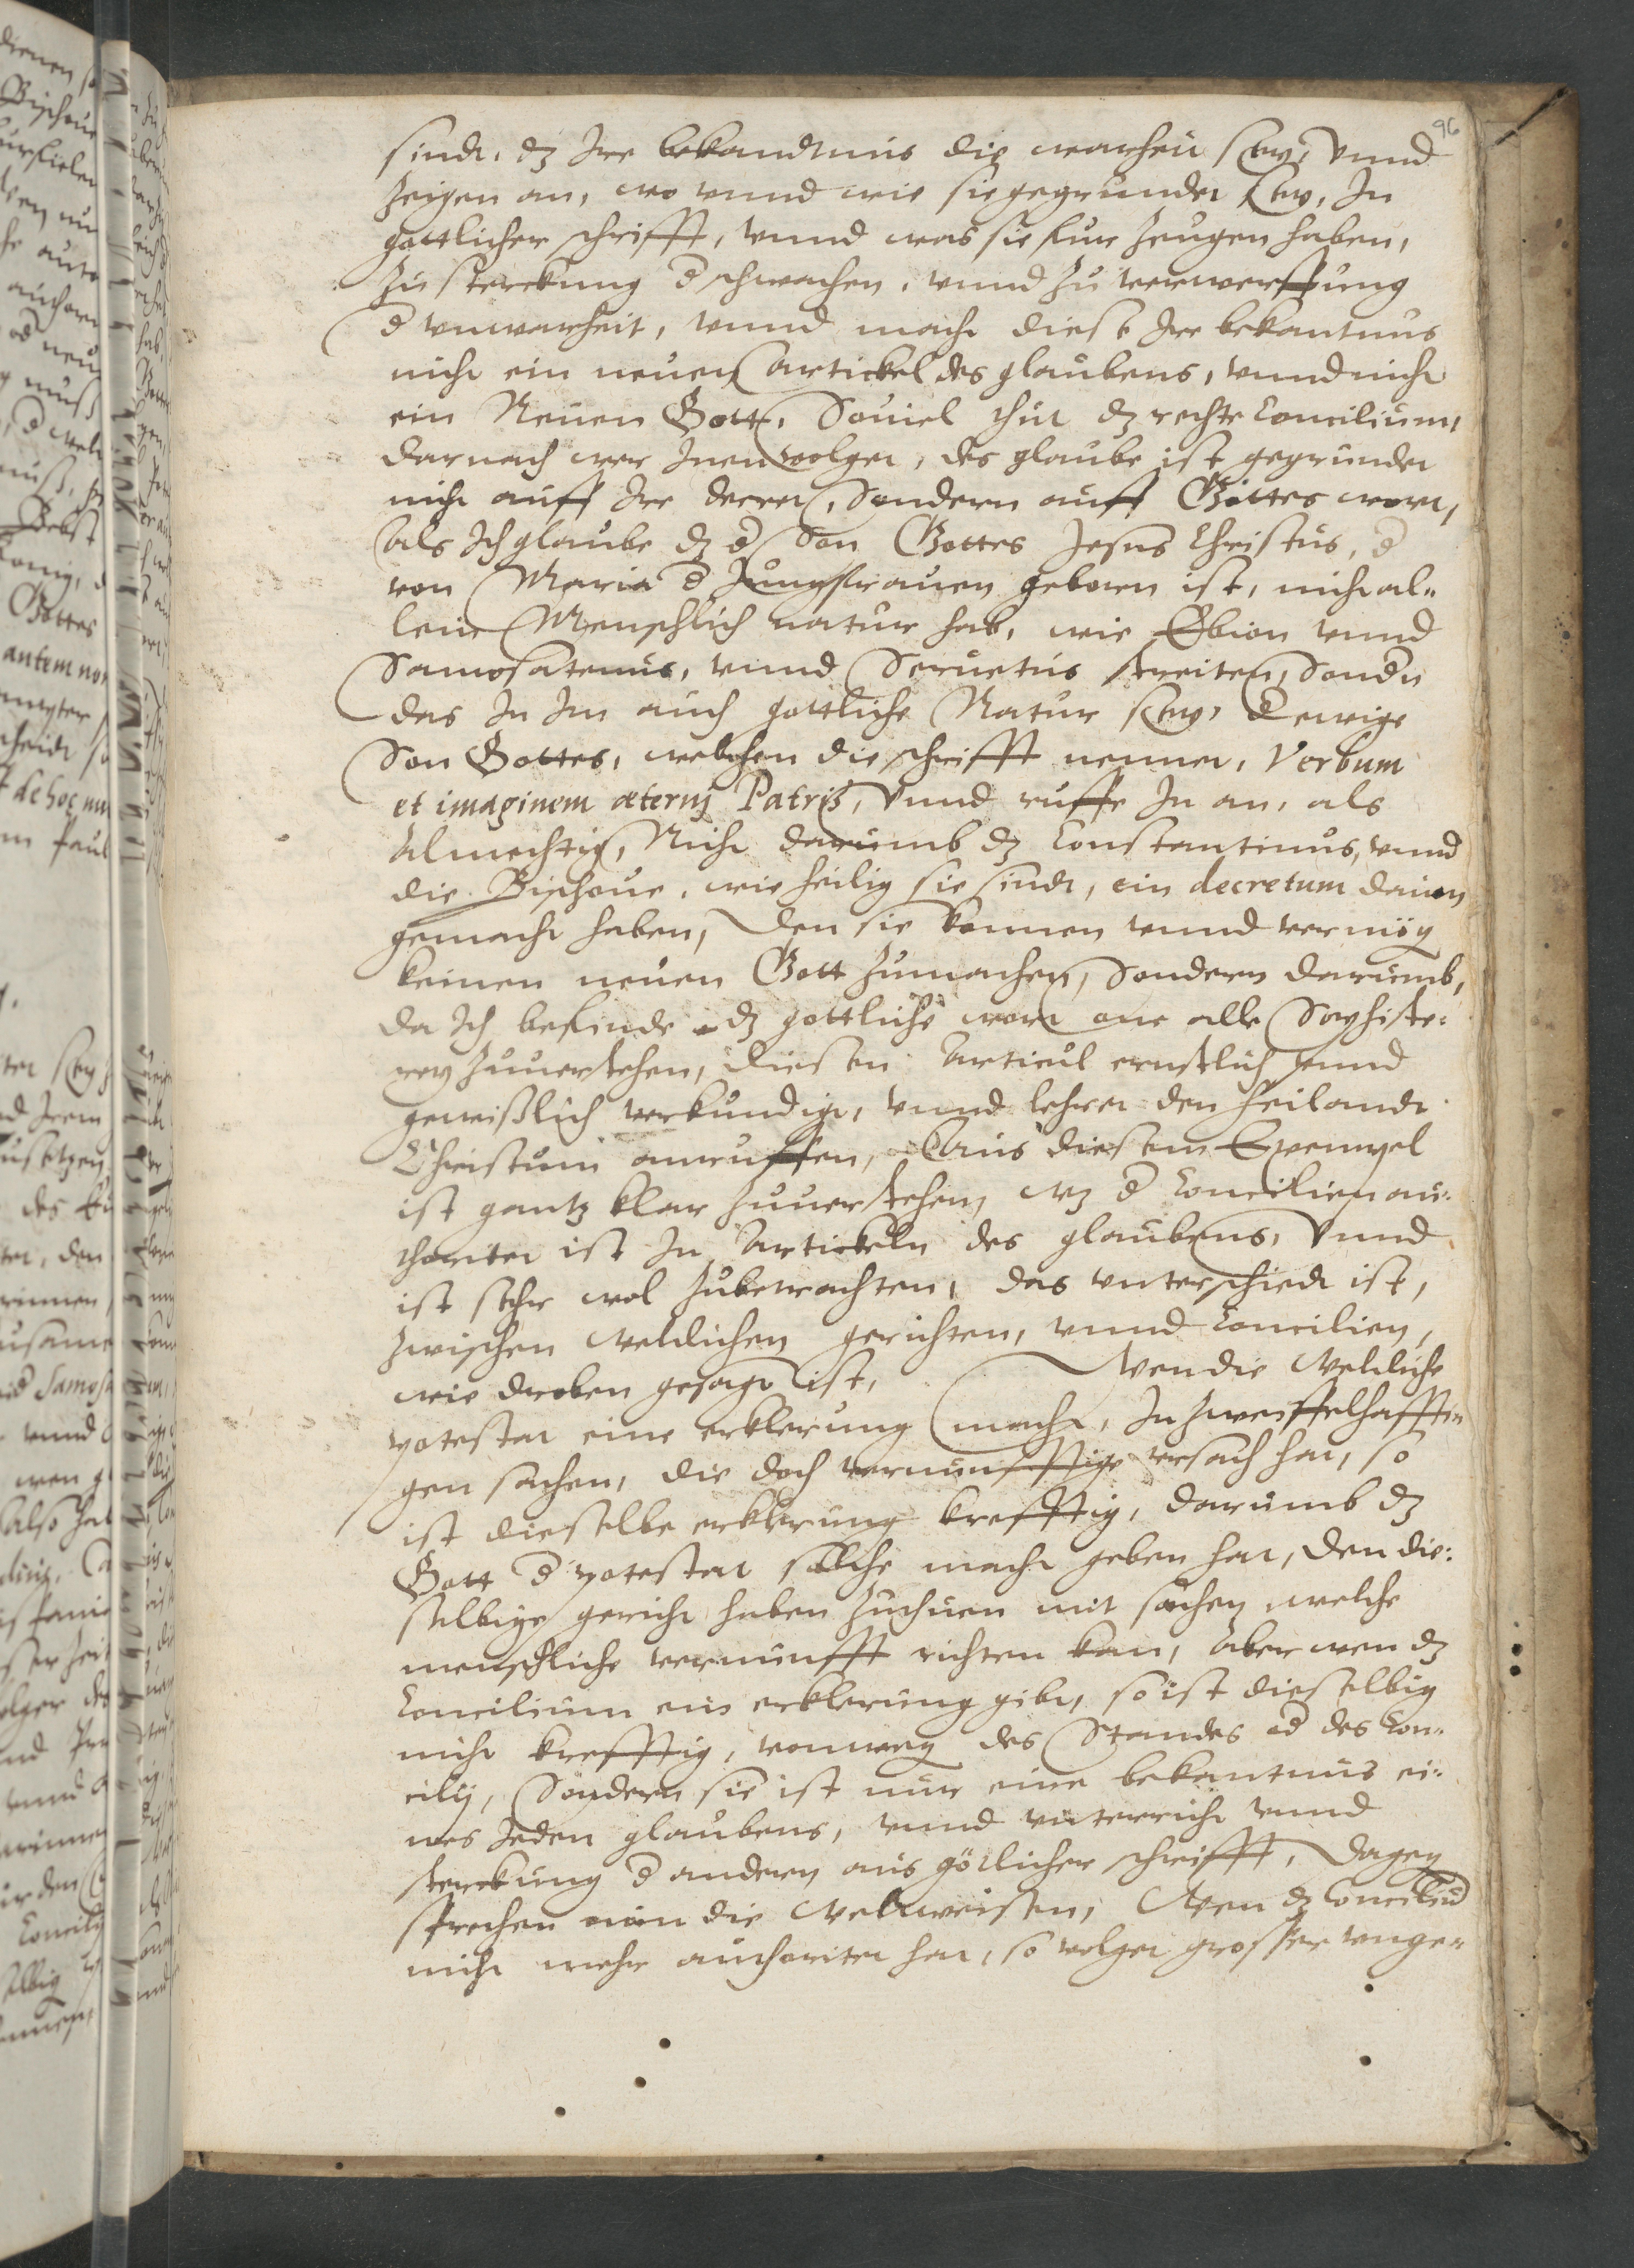 96
sindt, dz Ire bekandtnus die warheit sey, Vnnd
zeigen an, wo vnnd wie sie gegrundet sey, In
gottlicher schrifft, vnnd was sie fur zeugen haben,
zu sterckung d schwachen, vnnd zu verwerffung
d vnwarheit, vnnd macht diese Ire bekantnus
nicht ein neuen Artickel des glaubens, vnnd nicht
ein Neuen Gott, Souiel thut dz rechte Concilium,
darnach wer Inen volget, des glaube ist gegrundet
nicht auff Ire decret, Sondern auff Gottes wort,
Als Ich glaube dz d Son Gottes Jesus Christus, d
von Maria d Jungfrauen geborn ist, nicht al„
lein Menschlich natur hab, wie Ebion vnnd
Samosatenus, vnnd Seruetus streiten, Sondn
das In Im auch gottliche Natur sey, d ewige
Son Gottes, welchen die schrifft nennet, Verbum
et imaginem æternj Patris, Vnnd ruffe In an, als
Almechtig, Nicht darumb dz Constantinus, vnnd
die Bischoue, wie heilig sie sindt, ein decretum dauon
gemacht haben, den sie konnen vnnd vermög
keinen neuen Gott zumachen, Sondern darumb,
da Ich befinde dz gottliche wort one alle Sophiste:
rey zuuerstehen, diesen Articul ernstlich vnnd
gewißlich verkundigt, vnnd lehret den heilandt
Christum anruffen, Aus diesem Exempel
ist gantz klar zuuerstehen, wz d Concilien au:
thoritet ist In Artickeln des glaubens, Vnnd
ist sehr wol zubetrachten, das vnterschiedt ist,
zwischen weltlichen gerichten, vnnd Concilien,
wie droben gesagt ist, Wen die weltliche
potestat eine erklerung macht, In zweiffelhafftin
gen sachen, die doch vernunfftige vrsach hat, so
ist dieselbe erklerung krefftig, darumb dz
Gott d potestat solche macht geben hat, den die:
selbige gericht haben zuthuen mit sachen welche
menschliche vernunfft richten kan, Aber wen dz
Concilium ein erklerung gibt, so ist dieselbig
nicht krefftig, vonweg des Standes od des Con„
cilij, Sondern sie ist nur eine bekantnus ei:
nes Jeden glaubens, vnnd vnterricht vnnd
sterckung d anderen aus götlicher schrifft, Dagen
sprechen nun die Weltweisen, Wen dz Conciliu
nicht mehr authoritet hat, so volget grosser vnge„